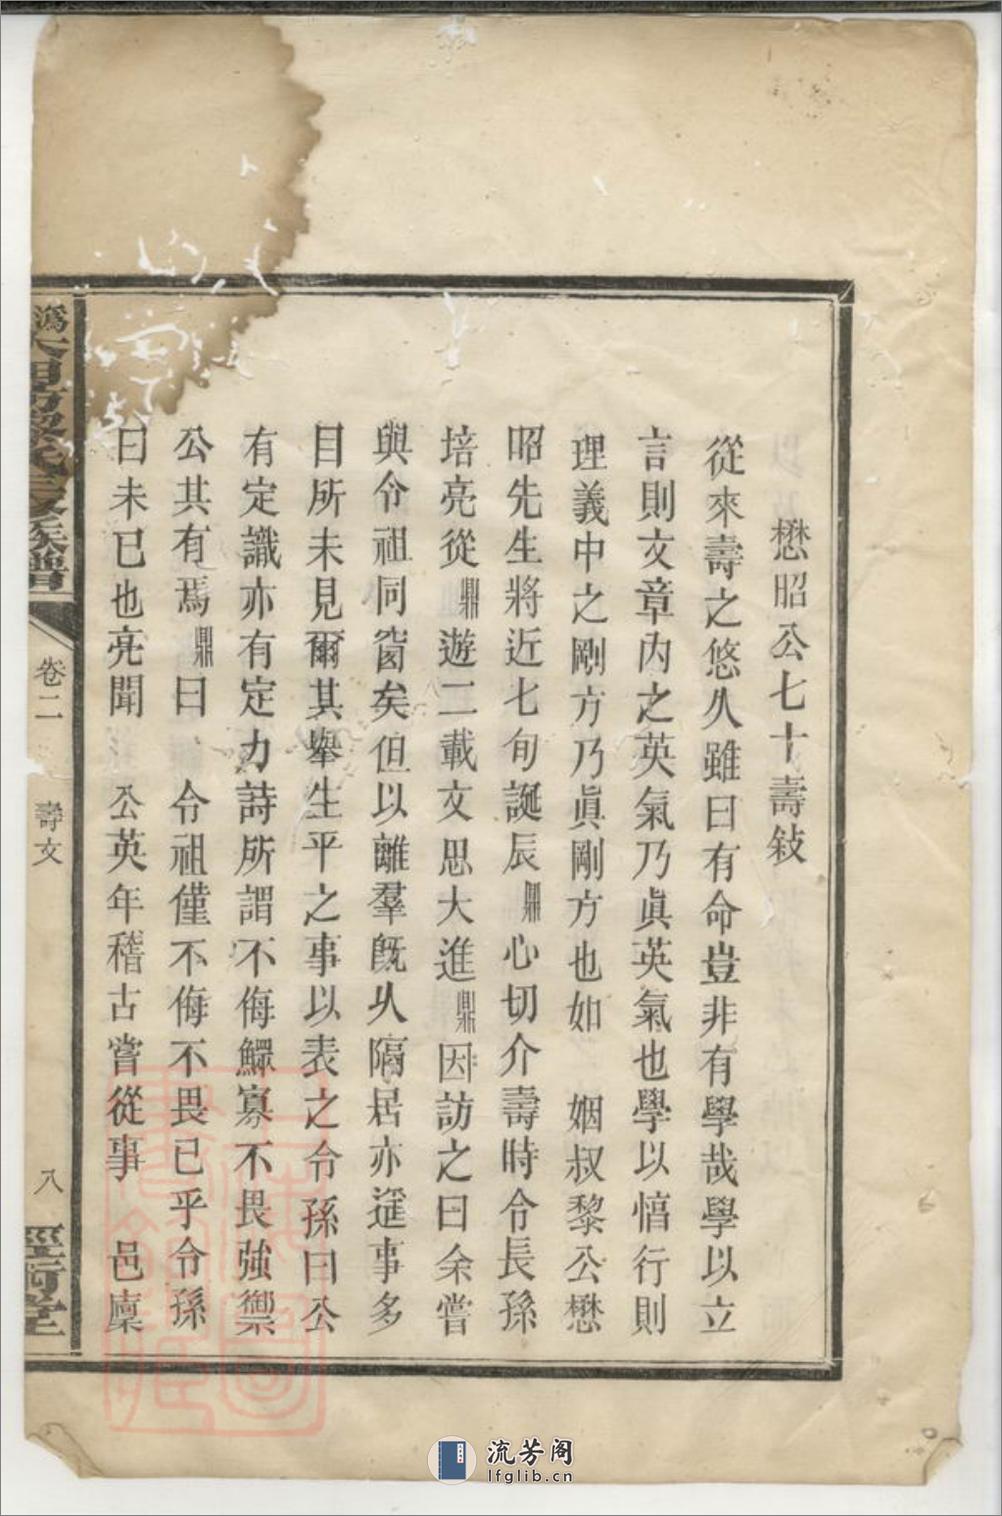 懋昭公七十壽敍
從來壽之悠久雖曰有命豈非有學哉學以立
言則文章內之英氣乃眞英氣也學以慎行則
理義中之剛方乃眞剛方也如 姻叔黎公懋
昭先生將近七旬誕辰鼎心切介壽時令長孫
培亮從鼎遊二載文思大進鼎因訪之曰余嘗
與令祖同窗矣但以離羣既久隔居亦遥事多
目所未見爾其舉生平之事以表之令孫曰公
有定識亦有定力詩所謂不侮鰥寡不畏強禦
公其有焉鼎曰 令祖僅不侮不畏已乎令孫
曰未已也亮聞 公英年稽古嘗從事 邑廩
卷二 壽文 八
流芳阁
lfglib.cn